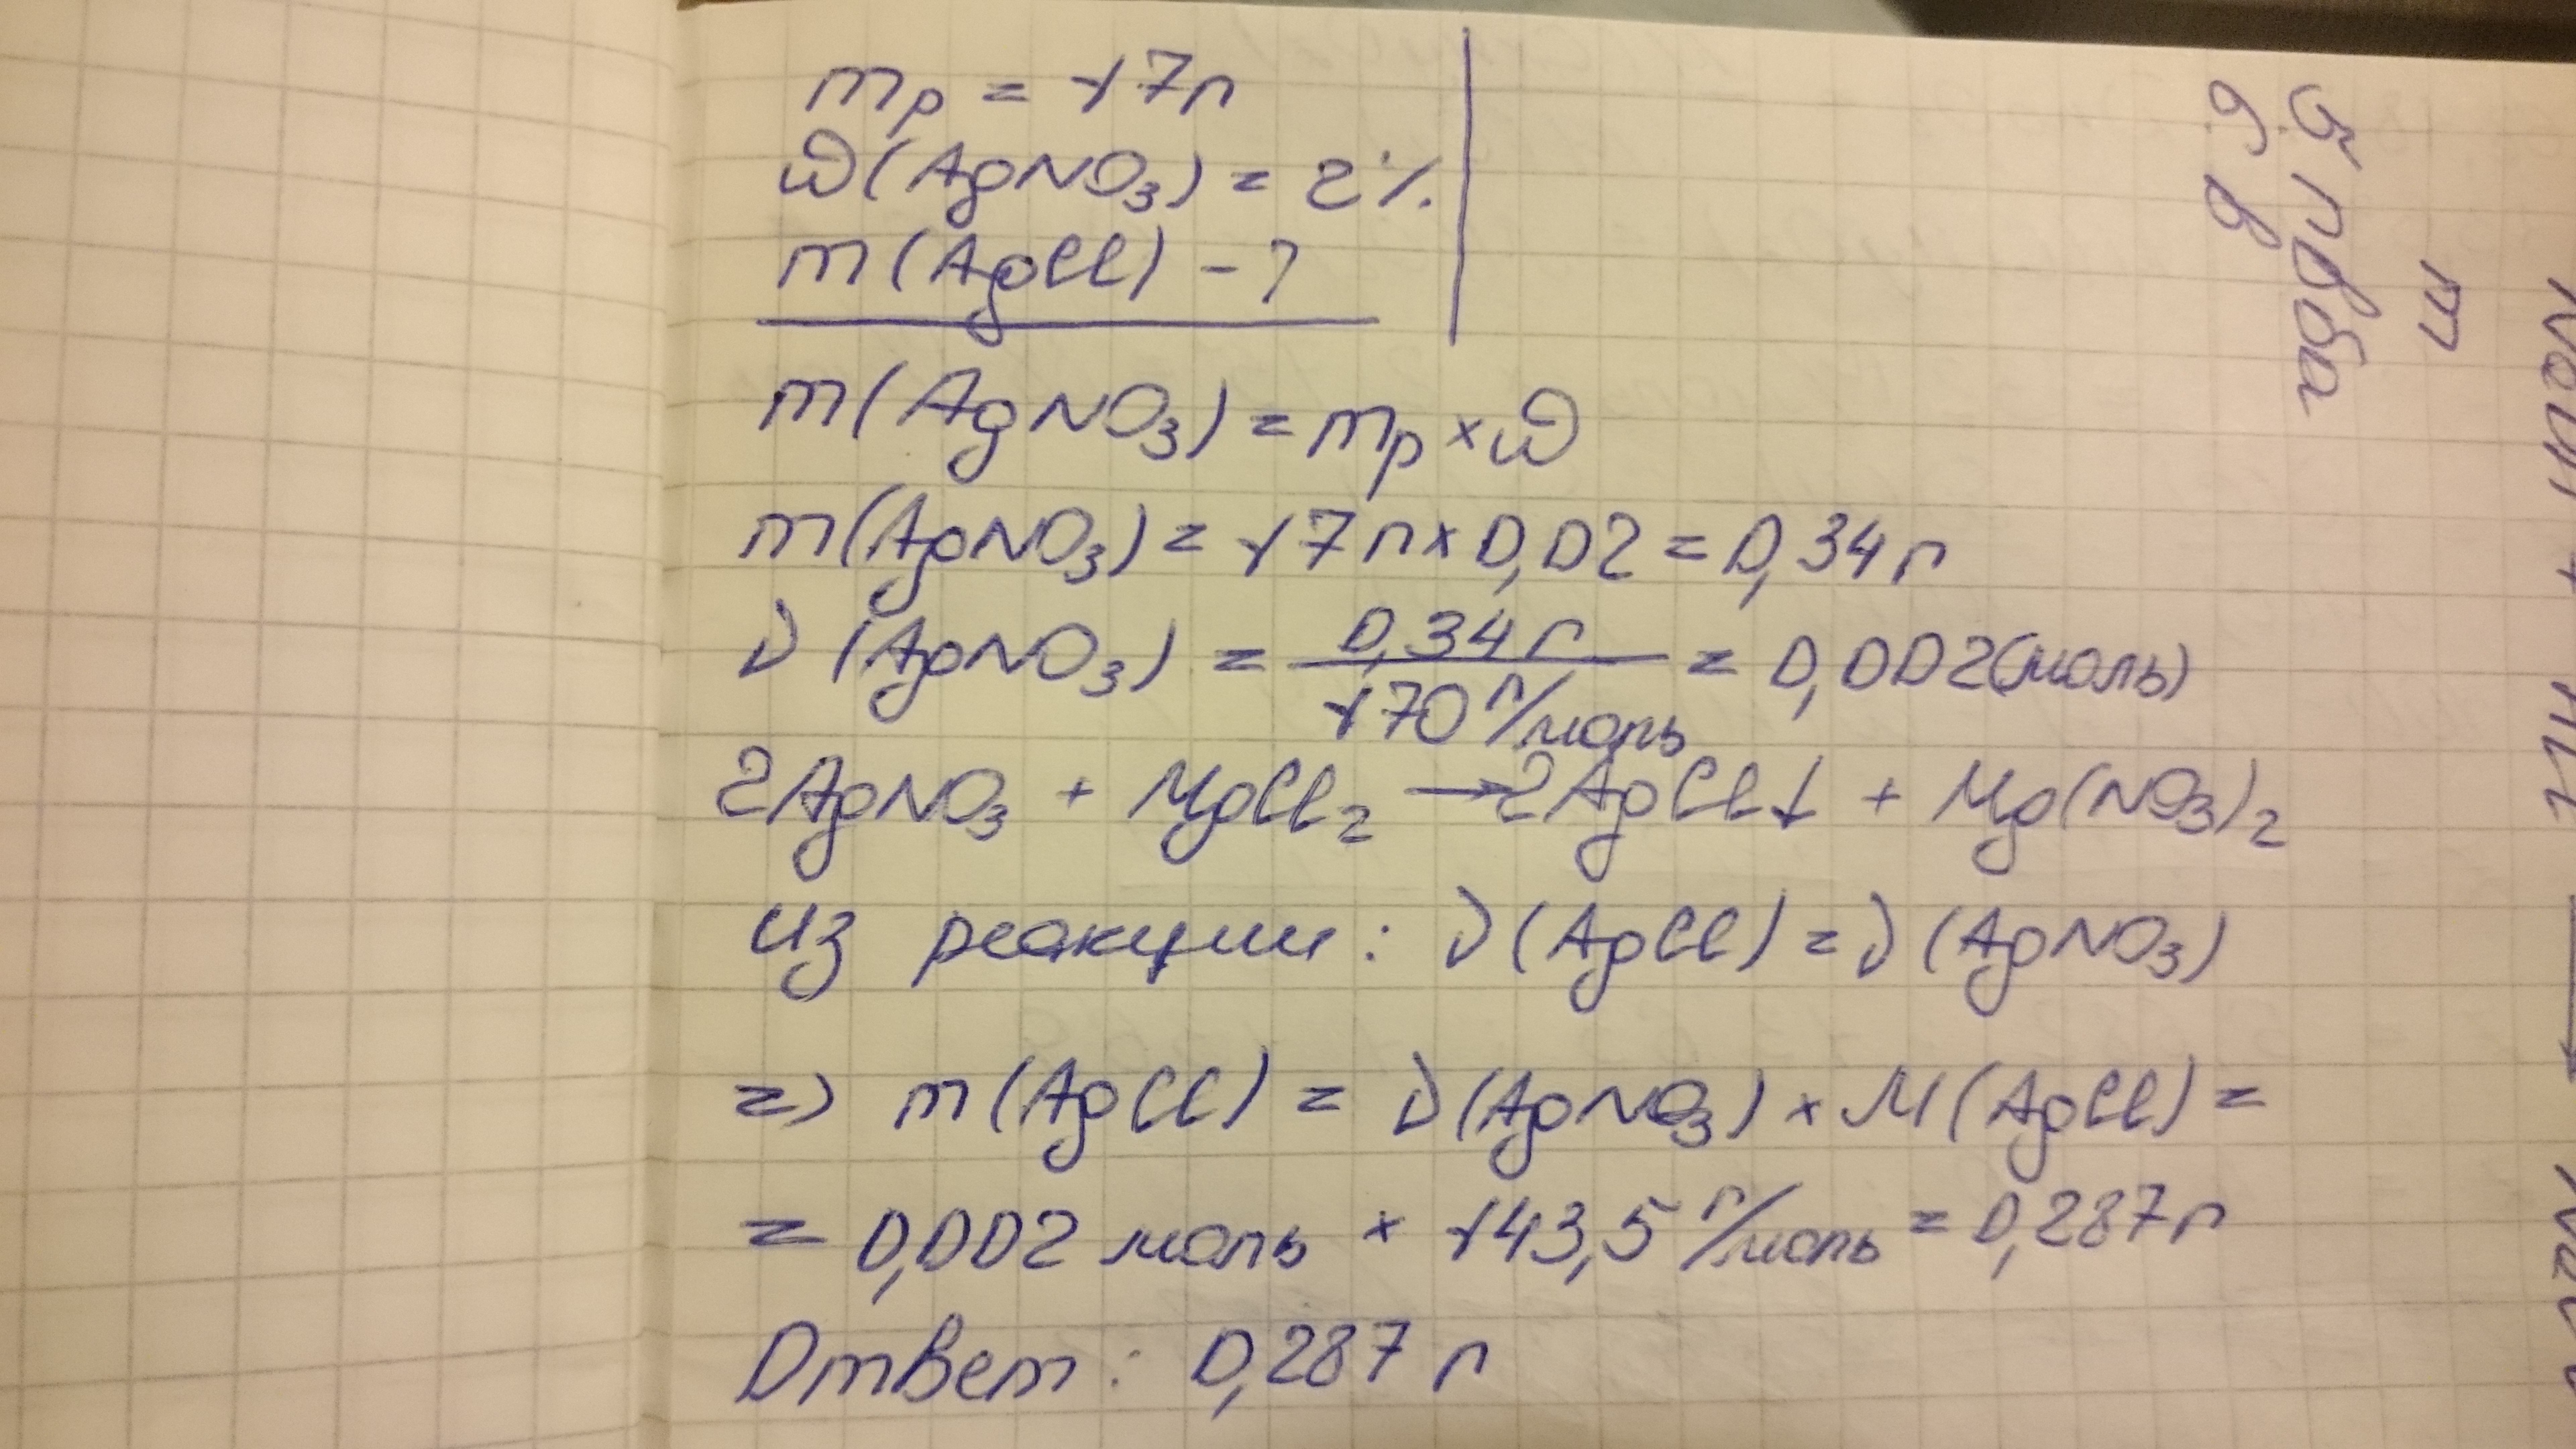 mр = 17г
ω(AgNO₃) = 2%
m(AgCl) - ?
m(AgNO₃) = mр × ω
m(AgNO₃) = 17г × 0,02 = 0,34г
ν(AgNO₃) = 0,34г / 170 г/моль = 0,002(моль)
2AgNO₃ + MgCl₂ → 2AgCl↓ + Mg(NO₃)₂
Из реакции: ν(AgCl) = ν(AgNO₃)
=> m(AgCl) = ν(AgNO₃) × M(AgCl) =
= 0,002 моль × 143,5 г/моль = 0,287г
Ответ: 0,287 г
m